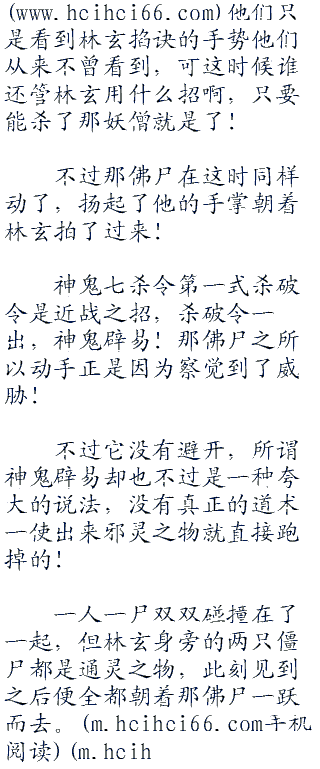 (www.hcihci66.com)他们只
是看到林玄掐诀的手势他们
从来不曾看到，可这时候谁
还管林玄用什么招啊，只要
能杀了那妖僧就是了！
不过那佛尸在这时同样
动了，扬起了他的手掌朝着
林玄拍了过来！
神鬼七杀令第一式杀破
令是近战之招，杀破令一
出，神鬼辟易！那佛尸之所
以动手正是因为察觉到了威
胁！
不过它没有避开，所谓
神鬼辟易却也不过是一种夸
大的说法，没有真正的道术
一使出来邪灵之物就直接跑
掉的！
一人一尸双双碰撞在了
一起，但林玄身旁的两只僵
尸都是通灵之物，此刻见到
之后便全都朝着那佛尸一跃
而去。(m.hcihci66.com手机
阅读)(m.hcih